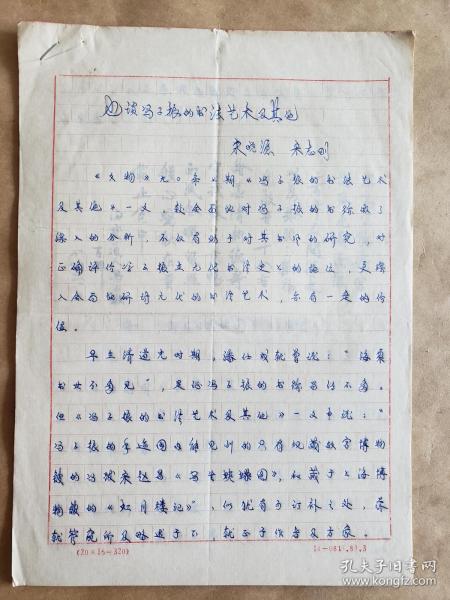 也谈冯子振的书法艺术及其他
宋晓源 宋志刚
《文物》九〇年 期《冯子振的书法艺术
及其他》一文，较全面地对冯子振的书迹做了
深入的分析，不仅有助于对其书风的研究，对
正确评价冯子振在元代书法史上的地位，更深
入全面地研讨元代的书法艺术，亦有一定的价
值。
早在清道光时期，潘仕成就曾说：“海粟
书世不多见”，足证冯子振的书迹留传不多。
但《冯子振的书法艺术及其他》一文中说：“
冯子振的手迹国内能见到的只有现藏故宫博物
馆的 跋 《 图》，和藏于上海博
物馆的《虹月楼记》”，仍犹有可订补之处，兹
就管窥所及略述于下，就正于作者及方家。
(20×16=320)
孔夫子旧书网